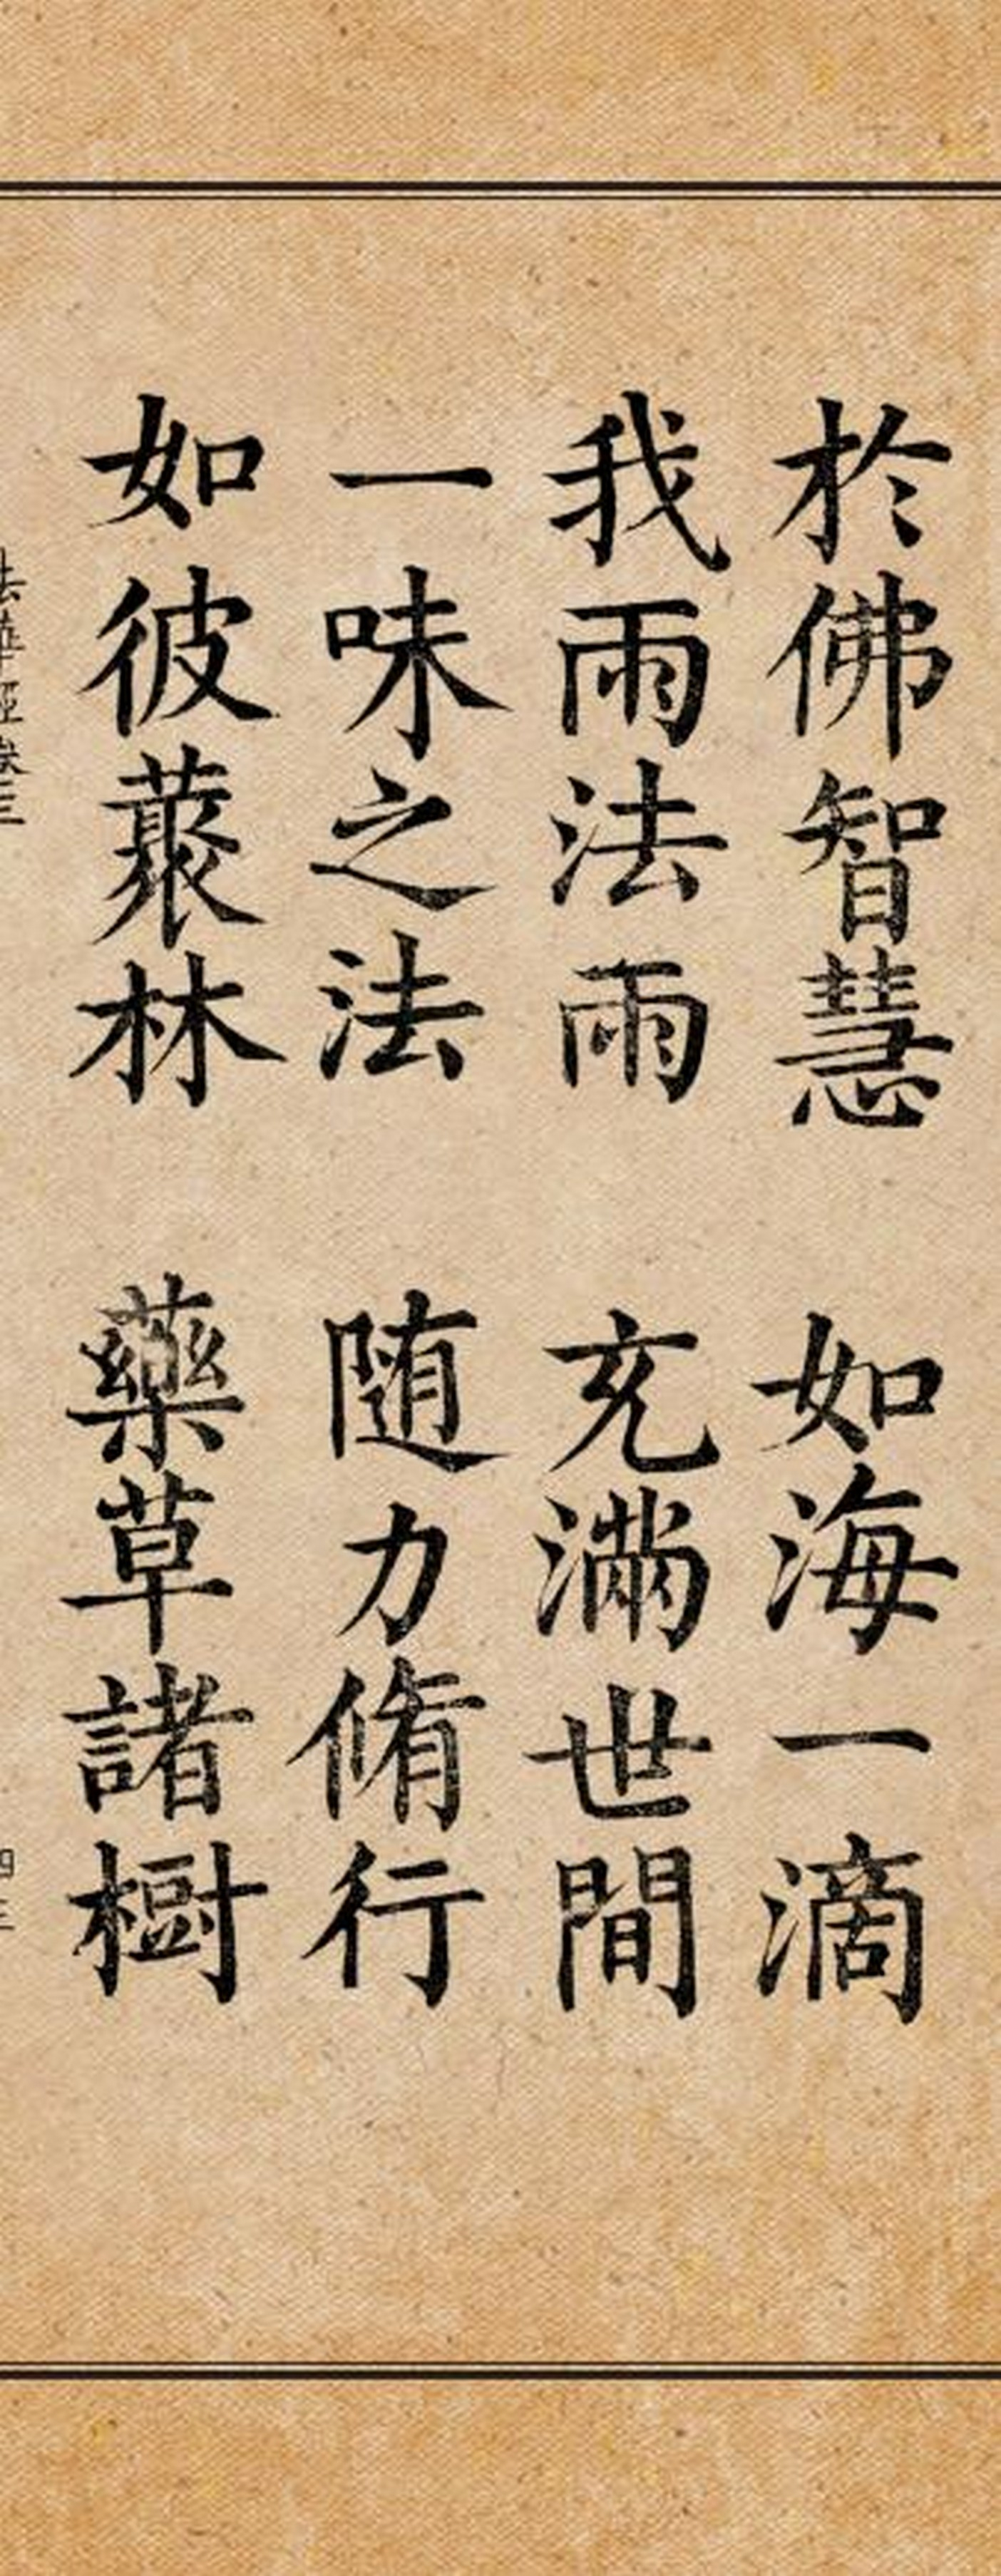 於佛智慧　如海一滴
我雨法雨　充滿世間
一味之法　随力脩行
如彼藂林　藥草諸樹
法華經卷三
四三